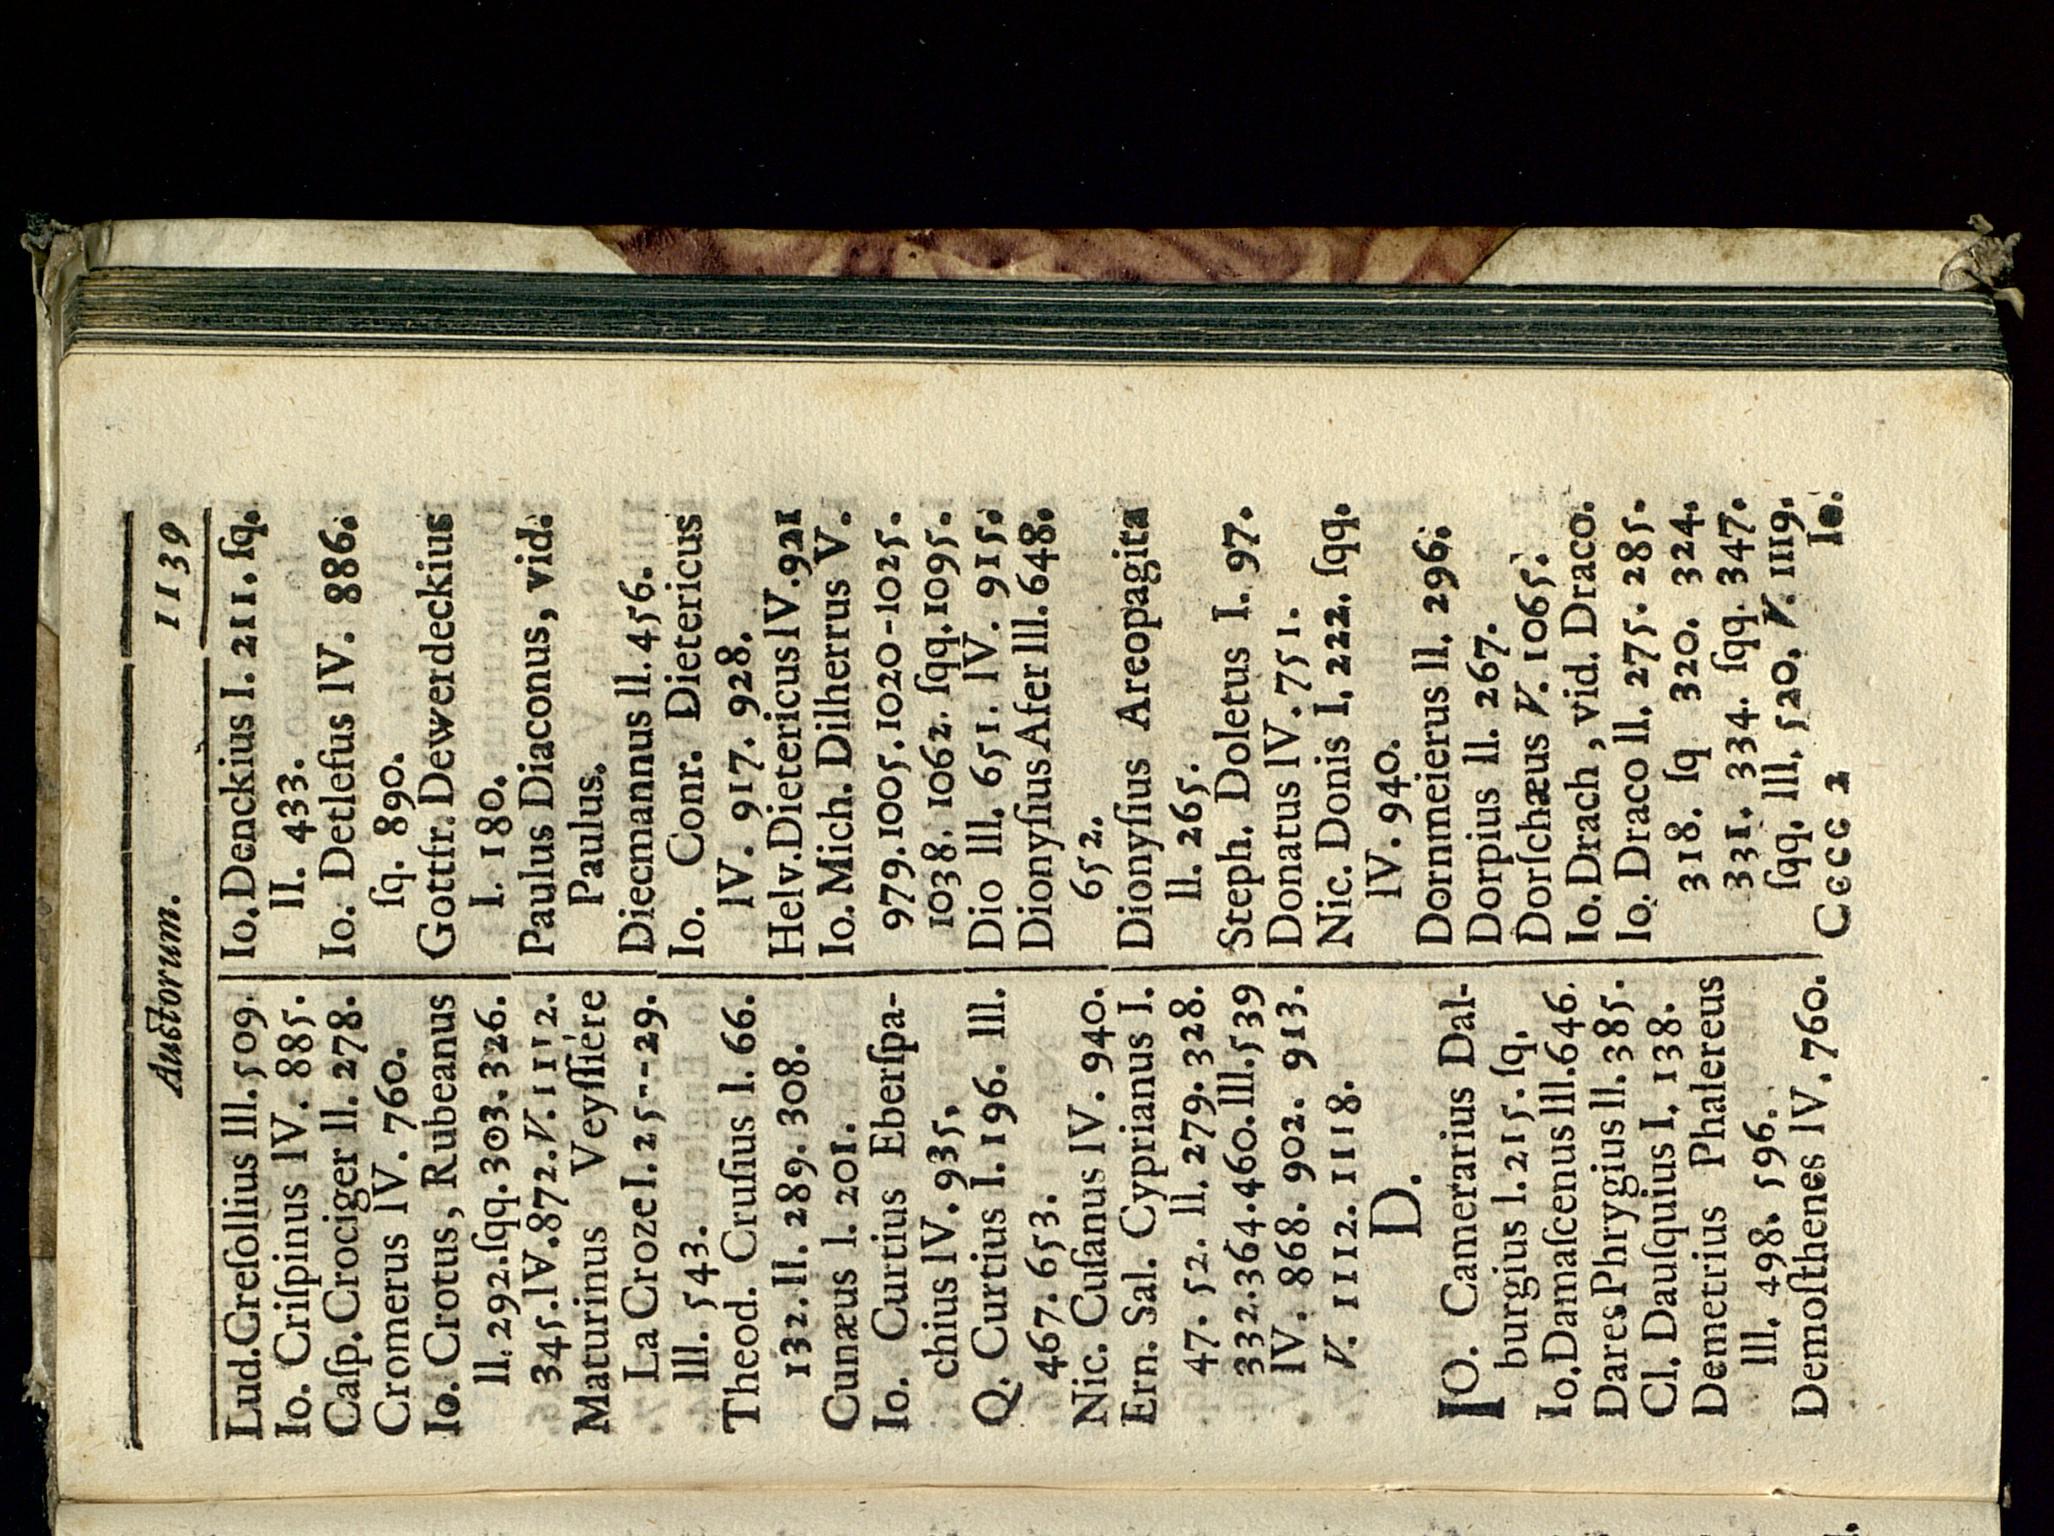 Auctorum. 1139
Lud. Greſollius III. 509.
Io. Criſpinus IV. 885.
Caſp. Crociger II. 278.
Cromerus IV. 760.
Io. Crotus, Rubeanus
II. 292. ſqq. 303. 326.
345. IV. 872. V. 1112.
Maturinus Veyſſiere
La Croze I. 25--29.
III. 543.
Theod. Cruſius I. 66.
132. II. 289. 308.
Cunæus I. 201.
Io. Curtius Eberſpa-
chius IV. 935.
Q. Curtius I. 196. III.
467. 653.
Nic. Cuſanus IV. 940.
Ern. Sal. Cyprianus I.
47. 52. II. 279. 328.
332. 364. 460. III. 539
IV. 868. 902. 913.
V. 1112. 1118.
D.
IO. Camerarius Dal-
burgius I. 215. ſq.
Io. Damaſcenus III. 646.
Dares Phrygius II. 385.
Cl. Dauſquius I. 138.
Demetrius Phalereus
III. 498. 596.
Demoſthenes IV. 760.
Io. Denckius I. 211. ſq.
II. 433.
Io. Detlefus IV. 886.
ſq. 890.
Gottfr. Dewerdeckius
I. 180.
Paulus Diaconus, vid.
Paulus.
Diecmannus II. 456.
Io. Conr. Dietericus
IV. 917. 928.
Helv. Dietericus IV. 921
Io. Mich. Dilherrus V.
979. 1005. 1020-1025.
1038. 1062. ſqq. 1095.
Dio III. 651. IV. 915.
Dionyſius Afer III. 648.
652.
Dionyſius Areopagita
II. 265.
Steph. Doletus I. 97.
Donatus IV. 751.
Nic. Donis I. 222. ſqq.
IV. 940.
Dornmeierus II. 296.
Dorpius II. 267.
Dorſchæus V. 1065.
Io. Drach, vid. Draco.
Io. Draco II. 275. 285.
318. ſq 320. 324.
331. 334. ſqq. 347.
ſqq. III. 520. V. 1119.
Cccc 2 Io.